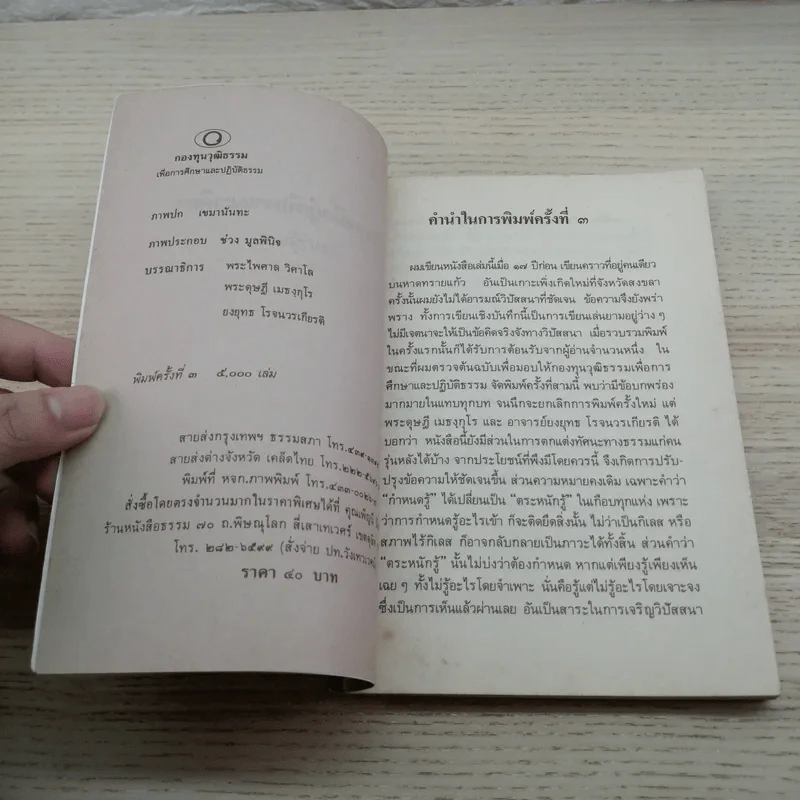 กองทุนวุฒิธรรม
เพื่อการศึกษาและปฏิบัติธรรม
ภาพปก เขมานันทะ
ภาพประกอบ ช่วง มูลพินิจ
บรรณาธิการ พระไพศาล วิสาโล
พระดุษฎี เมธงฺกุโร
ยงยุทธ โรจนวรเกียรติ
พิมพ์ครั้งที่ ๓ ๕,๐๐๐ เล่ม
สายส่งกรุงเทพฯ ธรรมสภา โทร.
สายส่งต่างจังหวัด เคล็ดไทย โทร.๒๒๒-
พิมพ์ที่ หจก.ภาพพิมพ์ โทร.๔๓๓-
สั่งซื้อโดยตรงจำนวนมากในราคาพิเศษได้ที่
ร้านหนังสือธรรม ๗๐ ถ.พิษณุโลก สี่เสาเทเวศร์
โทร. ๒๘๒-๖๕๙๙ (สั่งจ่าย ปท.
ราคา ๔๐ บาท
คำนำในการพิมพ์ครั้งที่ ๓
ผมเขียนหนังสือเล่มนี้เมื่อ ๑๗ ปีก่อน เขียนคราวที่อยู่คนเดียว
บนหาดทรายแก้ว อันเป็นเกาะเพิ่งเกิดใหม่ที่จังหวัดสงขลา
ครั้งนั้นผมยังไม่ได้อารมณ์วิปัสสนาที่ชัดเจน ข้อความจึงยังพร่า
พราง ทั้งการเขียนเชิงบันทึกนี้เป็นการเขียนเล่นยามอยู่ว่าง ๆ
ไม่มีเจตนาจะให้เป็นข้อคิดจริงจังทางวิปัสสนา เมื่อรวบรวมพิมพ์
ในครั้งแรกนั้นก็ได้รับการต้อนรับจากผู้อ่านจำนวนหนึ่ง ใน
ขณะที่ผมตรวจต้นฉบับเพื่อมอบให้กองทุนวุฒิธรรมเพื่อการ
ศึกษาและปฏิบัติธรรม จัดพิมพ์ครั้งที่สามนี้ พบว่ามีข้อบกพร่อง
มากมายในแทบทุกบท จนนึกจะยกเลิกการพิมพ์ครั้งใหม่ แต่
พระดุษฎี เมธงฺกุโร และ อาจารย์ยงยุทธ โรจนวรเกียรติ ได้
บอกว่า หนังสือนี้ยังมีส่วนในการตกแต่งทัศนะทางธรรมแก่คน
รุ่นหลังได้บ้าง จากประโยชน์ที่พึงมีโดยควรนี้ จึงเกิดการปรับ-
ปรุงข้อความให้ชัดเจนขึ้น ส่วนความหมายคงเดิม เฉพาะคำว่า
“กำหนดรู้” ได้เปลี่ยนเป็น “ตระหนักรู้” ในเกือบทุกแห่ง เพราะ
ว่าการกำหนดรู้อะไรเข้า ก็จะติดยึดสิ่งนั้น ไม่ว่าเป็นกิเลส หรือ
สภาพไร้กิเลส ก็อาจกลับกลายเป็นภาวะได้ทั้งสิ้น ส่วนคำว่า
“ตระหนักรู้” นั้นไม่บ่งว่าต้องกำหนด หากแต่เพียงรู้เพียงเห็น
เฉย ๆ ทั้งไม่รู้อะไรโดยจำเพาะ นั่นคือรู้แต่ไม่รู้อะไรโดยเจาะจง
ซึ่งเป็นการเห็นแล้วผ่านเลย อันเป็นสาระในการเจริญวิปัสสนา